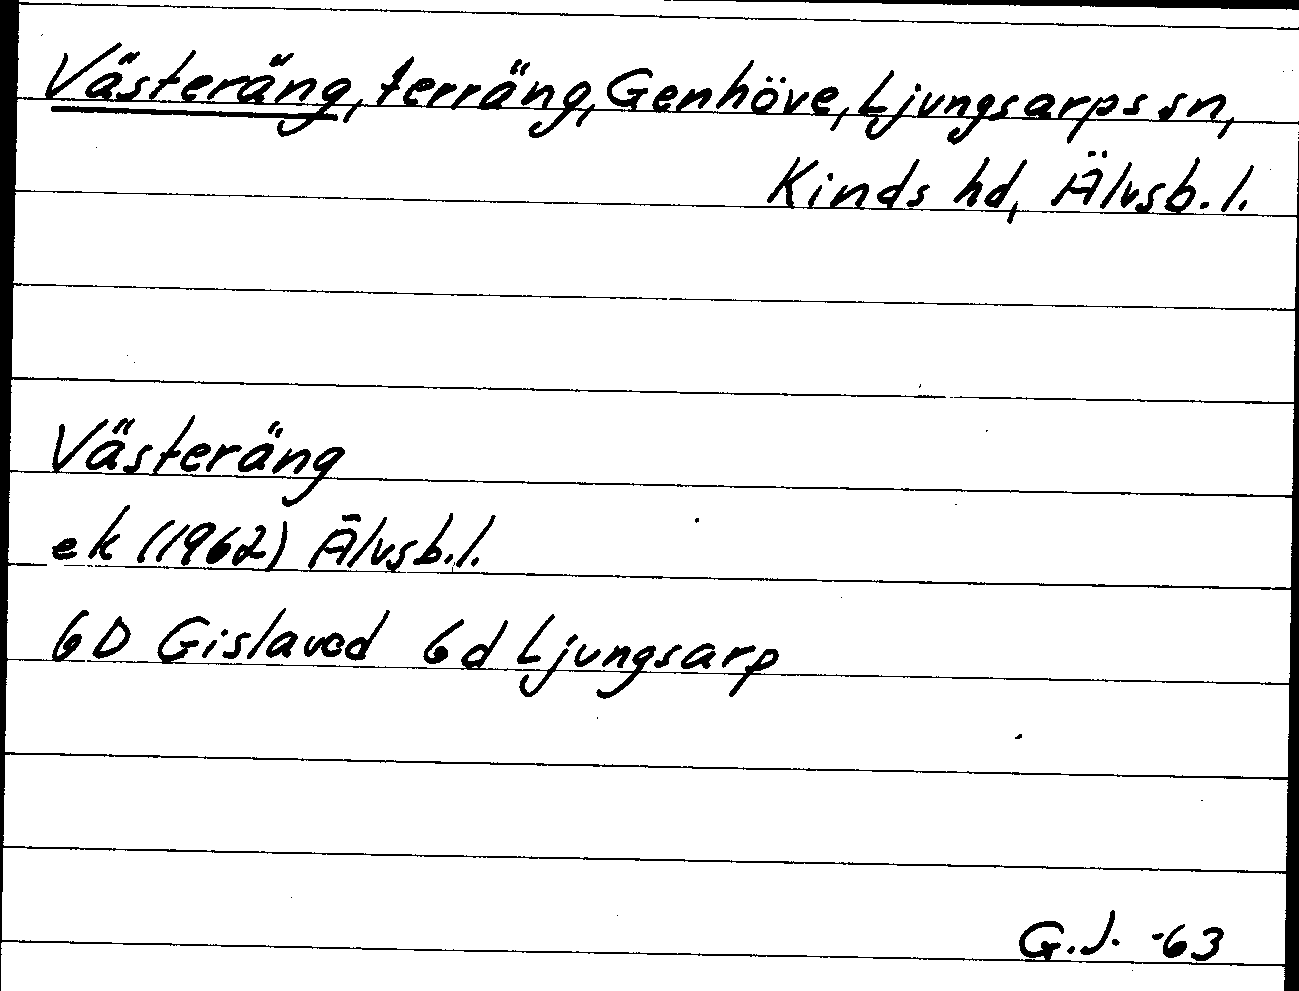 Västeräng, terräng, Genhöve, Ljungsarps sn,
Kinds hd, Älvsb. l.
Västeräng
ek (1962) Älvsb. l.
6D Gislaved 6d Ljungsarp
G.J. -63